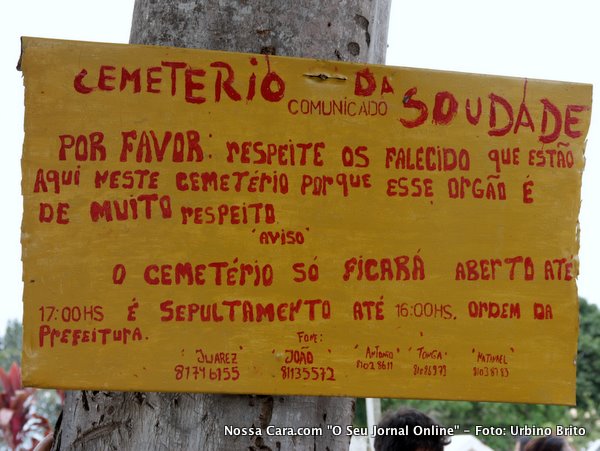 CEMETERIO DA SOUDADE
COMUNICADO
POR FAVOR: RESPEITE OS FALECIDO QUE ESTÃO
AQUI NESTE CEMETÉRIO PORQUE ESSE ORGÃO É
DE MUITO RESPEITO
"AVISO"
O CEMETÉRIO SÓ FICARÁ ABERTO ATÉ
17:00HS É SEPULTAMENTO ATÉ 16:00HS. ORDEM DA
PREFEITURA.
FONE:
"JUAREZ" JOÃO "ANTONIO" "TONGA" "MATANAEL"
81746155 81135572
Nossa Cara.com "O Seu Jornal Online" - Foto: Urbino Brito